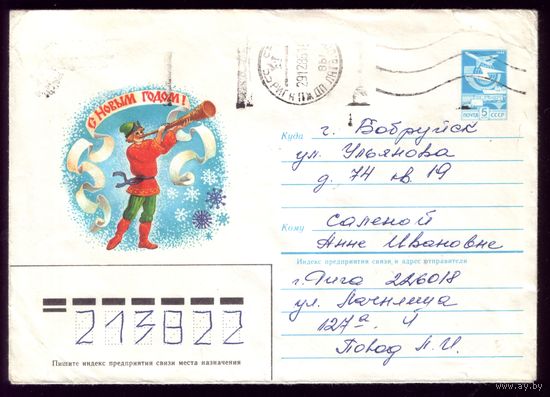 С НОВЫМ ГОДОМ!
291285
ПОЧТА 5К СССР
Куда г. Бобруйск
ул. Ульянова
д. 74 кв. 19
Кому Саленой
Анне Ивановне
Индекс предприятия связи и адрес отправителя
г. Рига 226018
ул. Лачплеша
127а
213822
Пишите индекс предприятия связи места назначения
www.ay.by